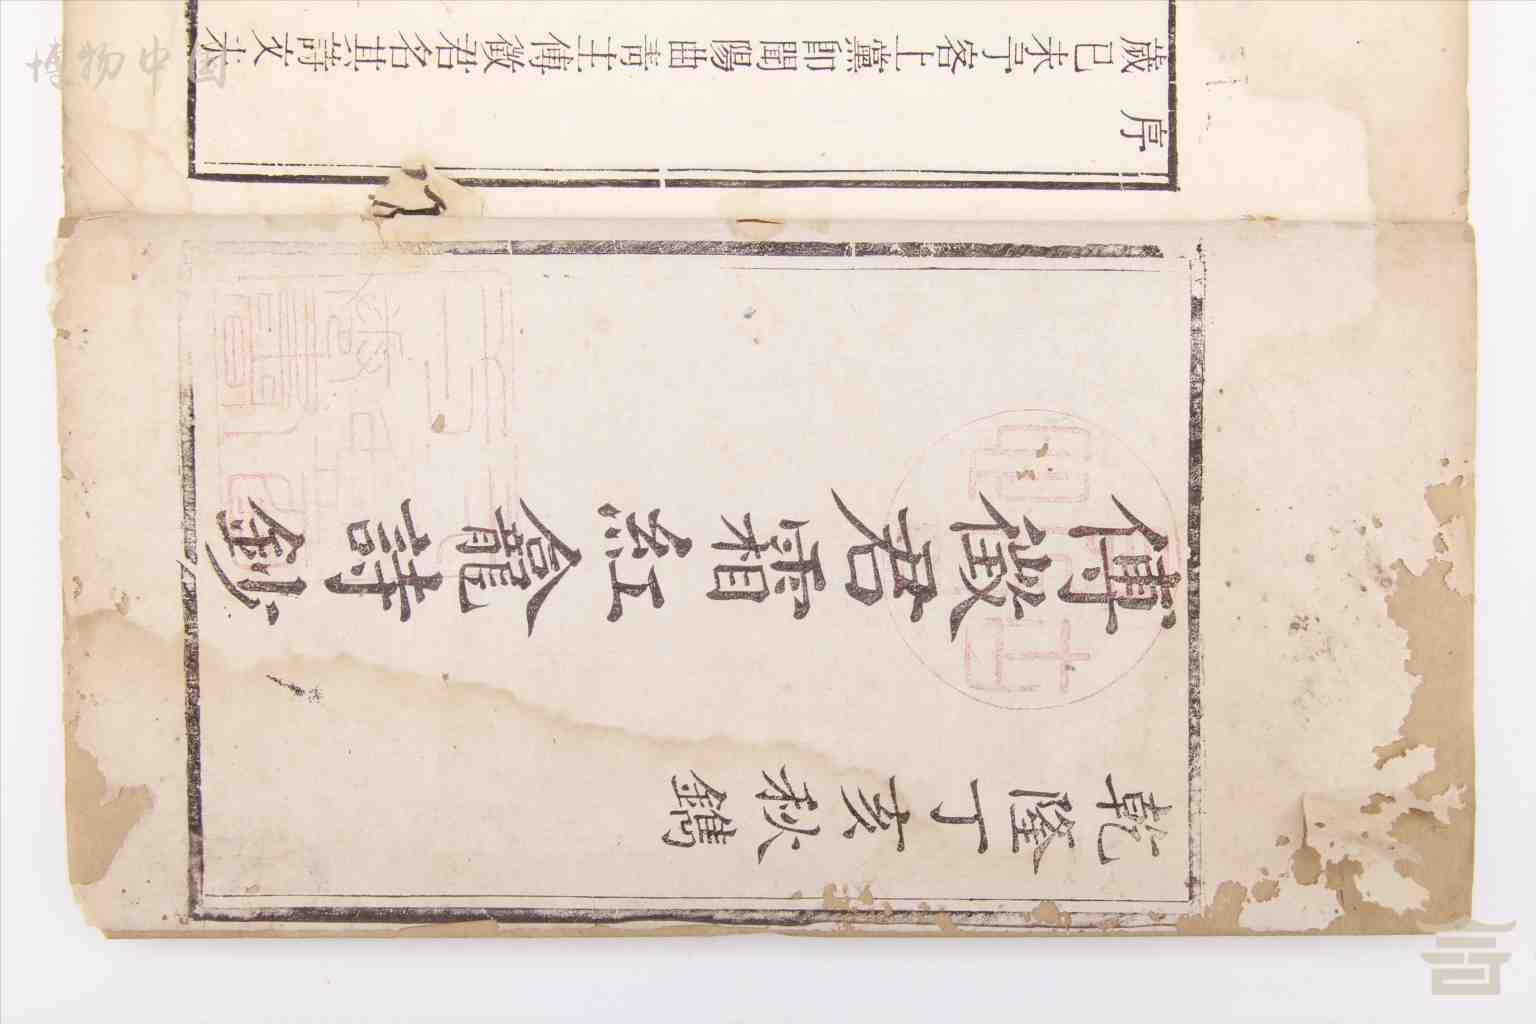 乾隆丁亥秋鐫
傅徵君霜紅龕詩鈔
序
歲己未予客上黨即聞陽曲高士傅徵君名其詩文未
博物中国